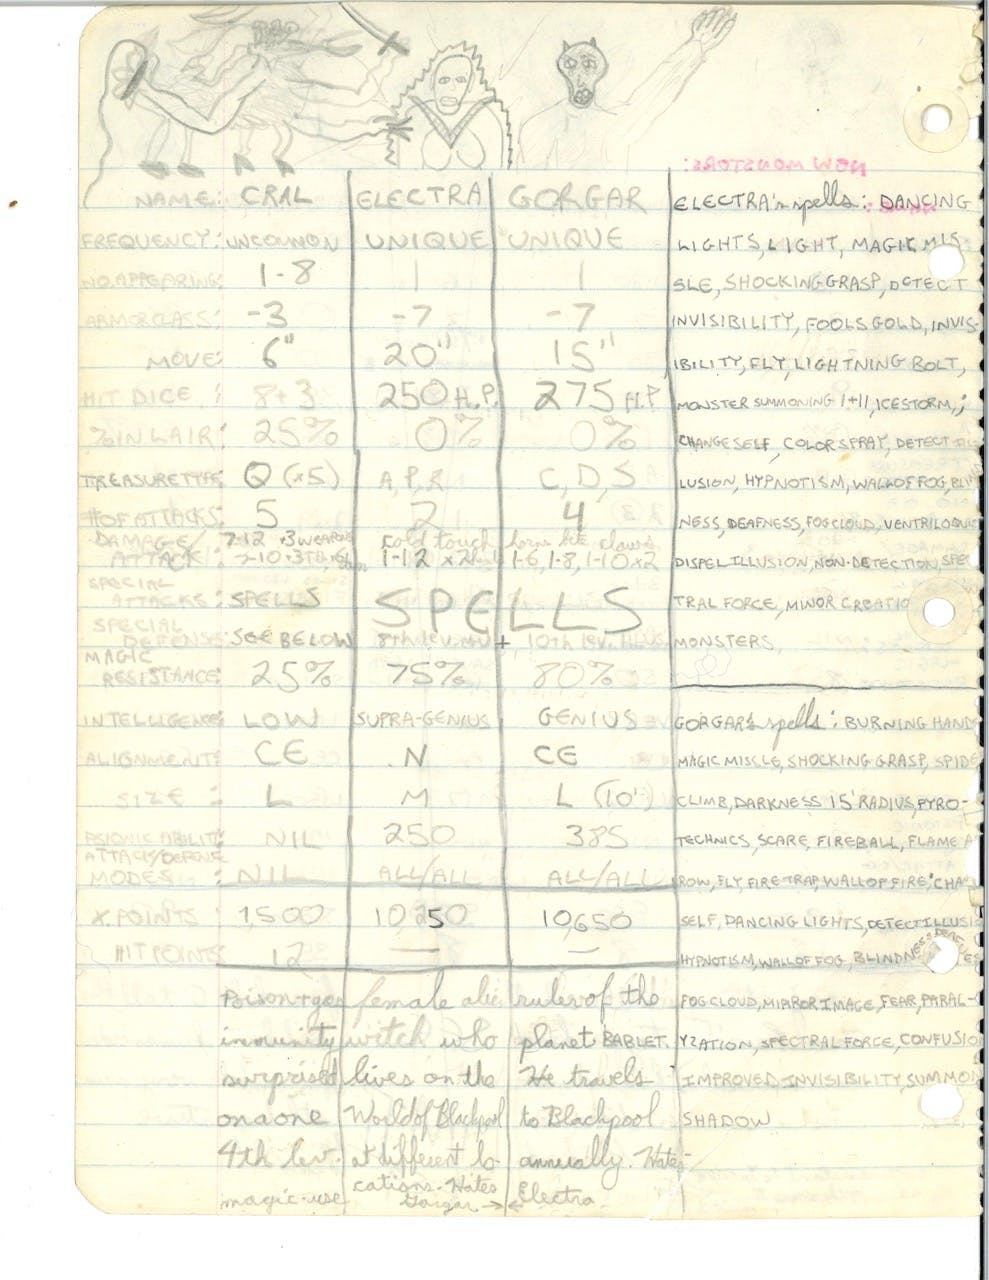 NEW MONSTORS:
NAME: CRAL ELECTRA GORGAR
FREQUENCY: UNCOMMON UNIQUE UNIQUE
NO. APPEARING: 1-8 1 1
ARMOR CLASS: -3 -7 -7
MOVE: 6" 20" 15"
HIT DICE: 8+3 250 H.P. 275 H.P
% IN LAIR: 25% 0% 0%
TREASURE TYPE: Q (x5) A, P, R C, D, S
# OF ATTACKS: 5 2 4
DAMAGE/ 7-12 +3 WEAPONS cold touch horns bite claws
ATTACK: 1-12 x2 1-6, 1-8, 1-10 x2
SPECIAL
ATTACKS: SPELLS SPELLS
SPECIAL
DEFENSE: SEE BELOW 8th lev. + 10th lev.
MAGIC
RESISTANCE: 25% 75% 80%
INTELLIGENCE: LOW SUPRA-GENIUS GENIUS
ALIGNMENT: CE N CE
SIZE: L M L (10')
PSIONIC ABILITY: NIL 250 385
ATTACK/DEFENSE
MODES: NIL ALL/ALL ALL/ALL
X. POINTS: 1500 10250 10,650
HIT POINTS: 12 — —
Poison + gas
immunity
surprised
on a one
4th lev.
magic-use
female
witch who
lives on the
World of Blackpool
at different lo-
cations. Hates
Gorgar →
ruler of the
planet BABLET.
He travels
to Blackpool
annually. Hates
← Electra
ELECTRA's spells: DANCING
LIGHTS, LIGHT, MAGIC MIS-
SLE, SHOCKING GRASP, DETECT
INVISIBILITY, FOOLS GOLD, INVIS-
IBILITY, FLY, LIGHTNING BOLT,
MONSTER SUMMONING I+II, ICESTORM,;
CHANGE SELF, COLOR SPRAY, DETECT
LUSION, HYPNOTISM, WALL OF FOG, BLI
NESS, DEAFNESS, FOG CLOUD, VENTRILOQUI
DISPEL ILLUSION, NON-DETECTION, SPEC
TRAL FORCE, MINOR CREATIO
MONSTERS.
GORGAR's spells: BURNING HAND
MAGIC MISSLE, SHOCKING GRASP, SPIDE
CLIMB, DARKNESS 15' RADIUS, PYRO-
TECHNICS, SCARE, FIREBALL, FLAME A
ROW, FLY, FIRE TRAP, WALL OF FIRE, CHA
SELF, DANCING LIGHTS, DETECT ILLUSI
HYPNOTISM, WALL OF FOG, BLINDNESS,
FOG CLOUD, MIRROR IMAGE, FEAR, PARAL-
YZATION, SPECTRAL FORCE, CONFUSIO
IMPROVED INVISIBILITY, SUMMON
SHADOW